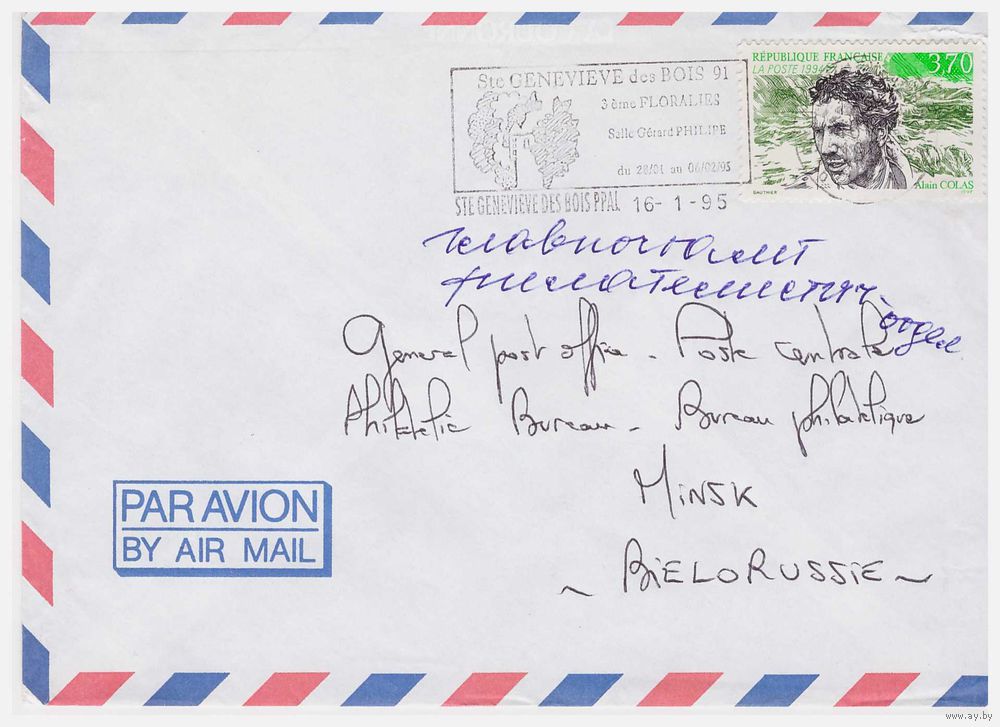 Ste GENEVIEVE des BOIS 91
3 ème FLORALIES
Salle Gérard PHILIPE
du 28/01 au 06/02/95
STE GENEVIEVE DES BOIS PPAL 16-1-95
RÉPUBLIQUE FRANÇAISE 3,70
LA POSTE 1994
Alain COLAS
GAUTHIER
главпочтамт
филателистич.
отдел
General post office - Poste centrale
Philatelic Bureau - Bureau philatélique
MiNSK
~ BiELORUSSiE ~
PAR AVION
BY AIR MAIL
www.ay.by